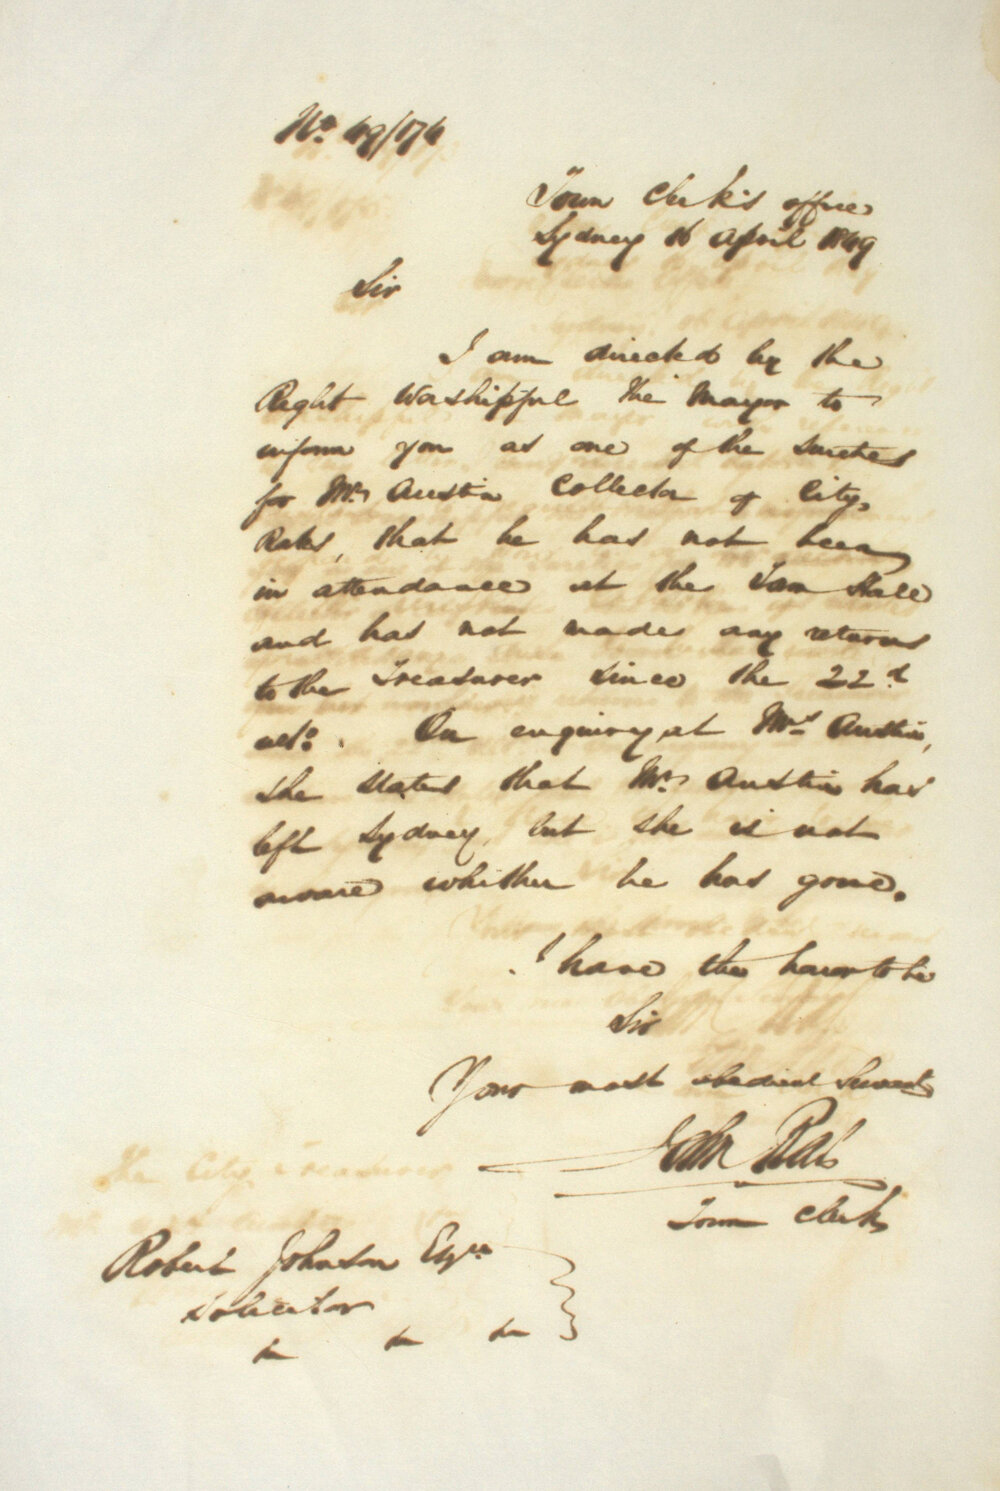 No. 49/174
Town Clerk's office
Sydney 16 April 1849
Sir
I am directed by the
Right Worshipful the Mayor to
inform you as one of the sureties
for Mr. Austin Collector of City
Rates, that he has not been
in attendance at the Town Hall
and has not made any returns
to the Treasurer since the 22d.
ulto. On enquiry at Mrs. Austin,
she states that Mr. Austin has
left Sydney, but she is not
aware whither he has gone.
I have the honor to be
Sir
Your most obedient Servant
John Rae
Town Clerk
Robert Johnson Esqre
Solicitor